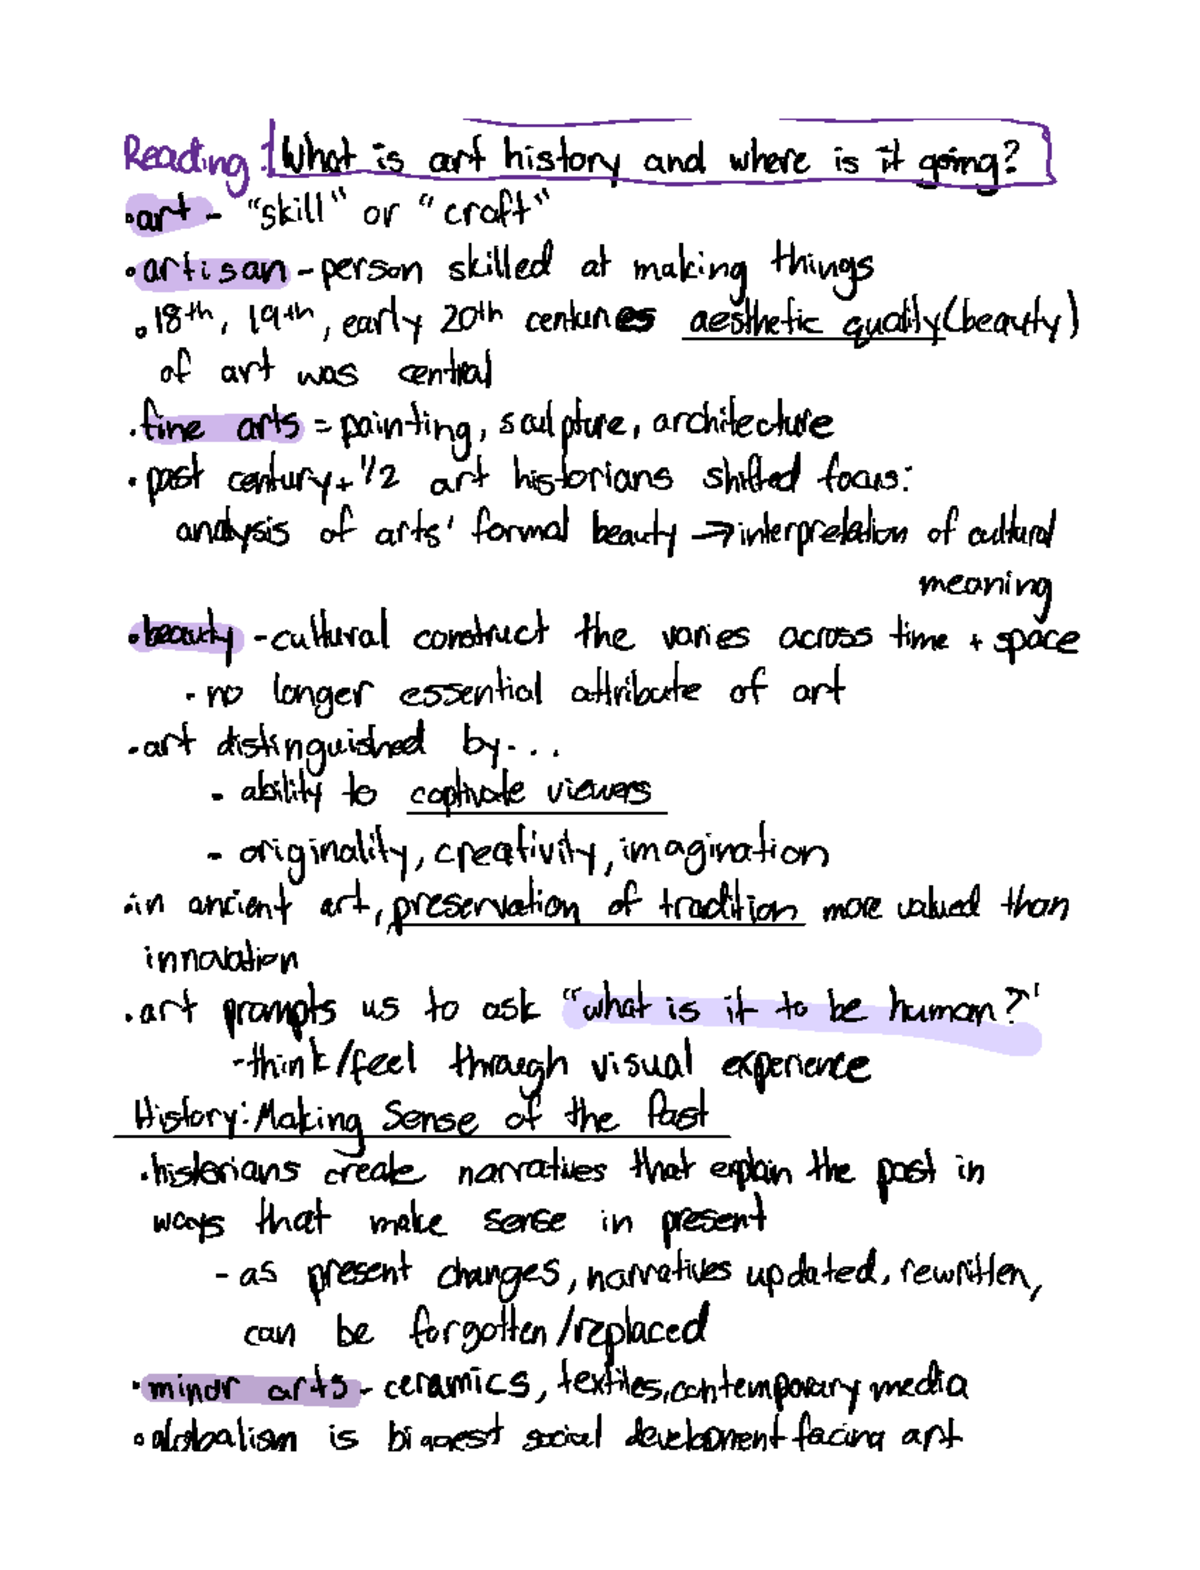 Reading: What is art history and where is it going?
•art - "skill" or "craft"
•artisan - person skilled at making things
•18th, 19th, early 20th centuries aesthetic quality (beauty)
of art was central
•fine arts = painting, sculpture, architecture
•past century + 1/2 art historians shifted focus:
analysis of arts' formal beauty → interpretation of cultural
meaning
•beauty - cultural construct the varies across time + space
- no longer essential attribute of art
•art distinguished by...
- ability to captivate viewers
- originality, creativity, imagination
•in ancient art, preservation of tradition more valued than
innovation
•art prompts us to ask "what is it to be human?"
- think/feel through visual experience
History: Making Sense of the Past
•historians create narratives that explain the past in
ways that make sense in present
- as present changes, narratives updated, rewritten,
can be forgotten/replaced
•minor arts - ceramics, textiles, contemporary media
•globalism is biggest social development facing art